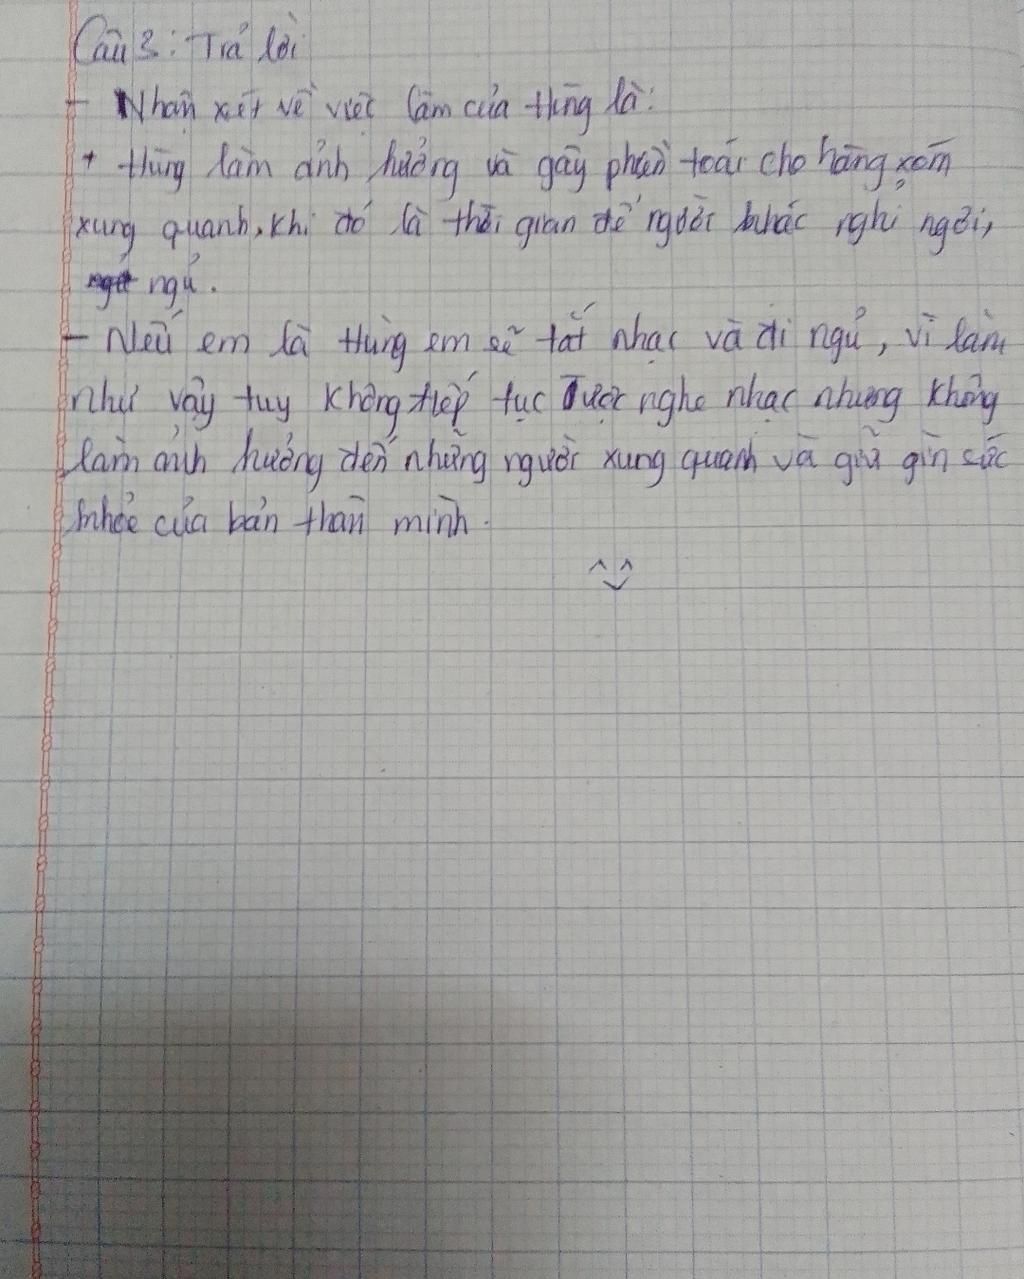 Câu 3: Trả lời
- Nhận xét về việc làm của Hùng là:
+ Hùng làm ảnh hưởng và gây phiền toái cho hàng xóm
xung quanh, khi đó là thời gian để người khác nghỉ ngơi,
ngủ.
- Nếu em là Hùng em sẽ tắt nhạc và đi ngủ, vì làm
như vậy tuy không tiếp tục được nghe nhạc nhưng không
làm ảnh hưởng đến những người xung quanh và giữ gìn sức
khỏe của bản thân mình.